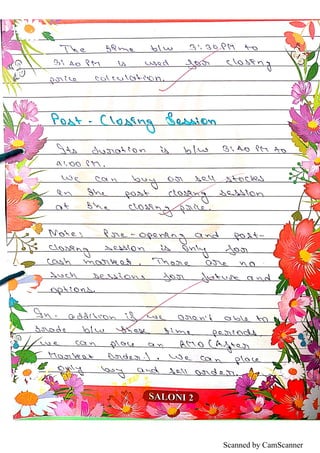 The same b/w 3:30PM to
3:40PM is used for closing
price calculation.
Post-Closing Session
Its duration is b/w 3:40PM to
4:00PM.
We can buy or sell stocks
in the post closing session
at the closing price.
Note: Pre-opening and post-
closing session is only for
cash market. There are no
such sessions for future and
options.
In- addition if we aren't able to
trade b/w these time periods
we can place an AMO(After
Market order). We can place
only buy and sell order.
SALONI 2
Scanned by CamScanner